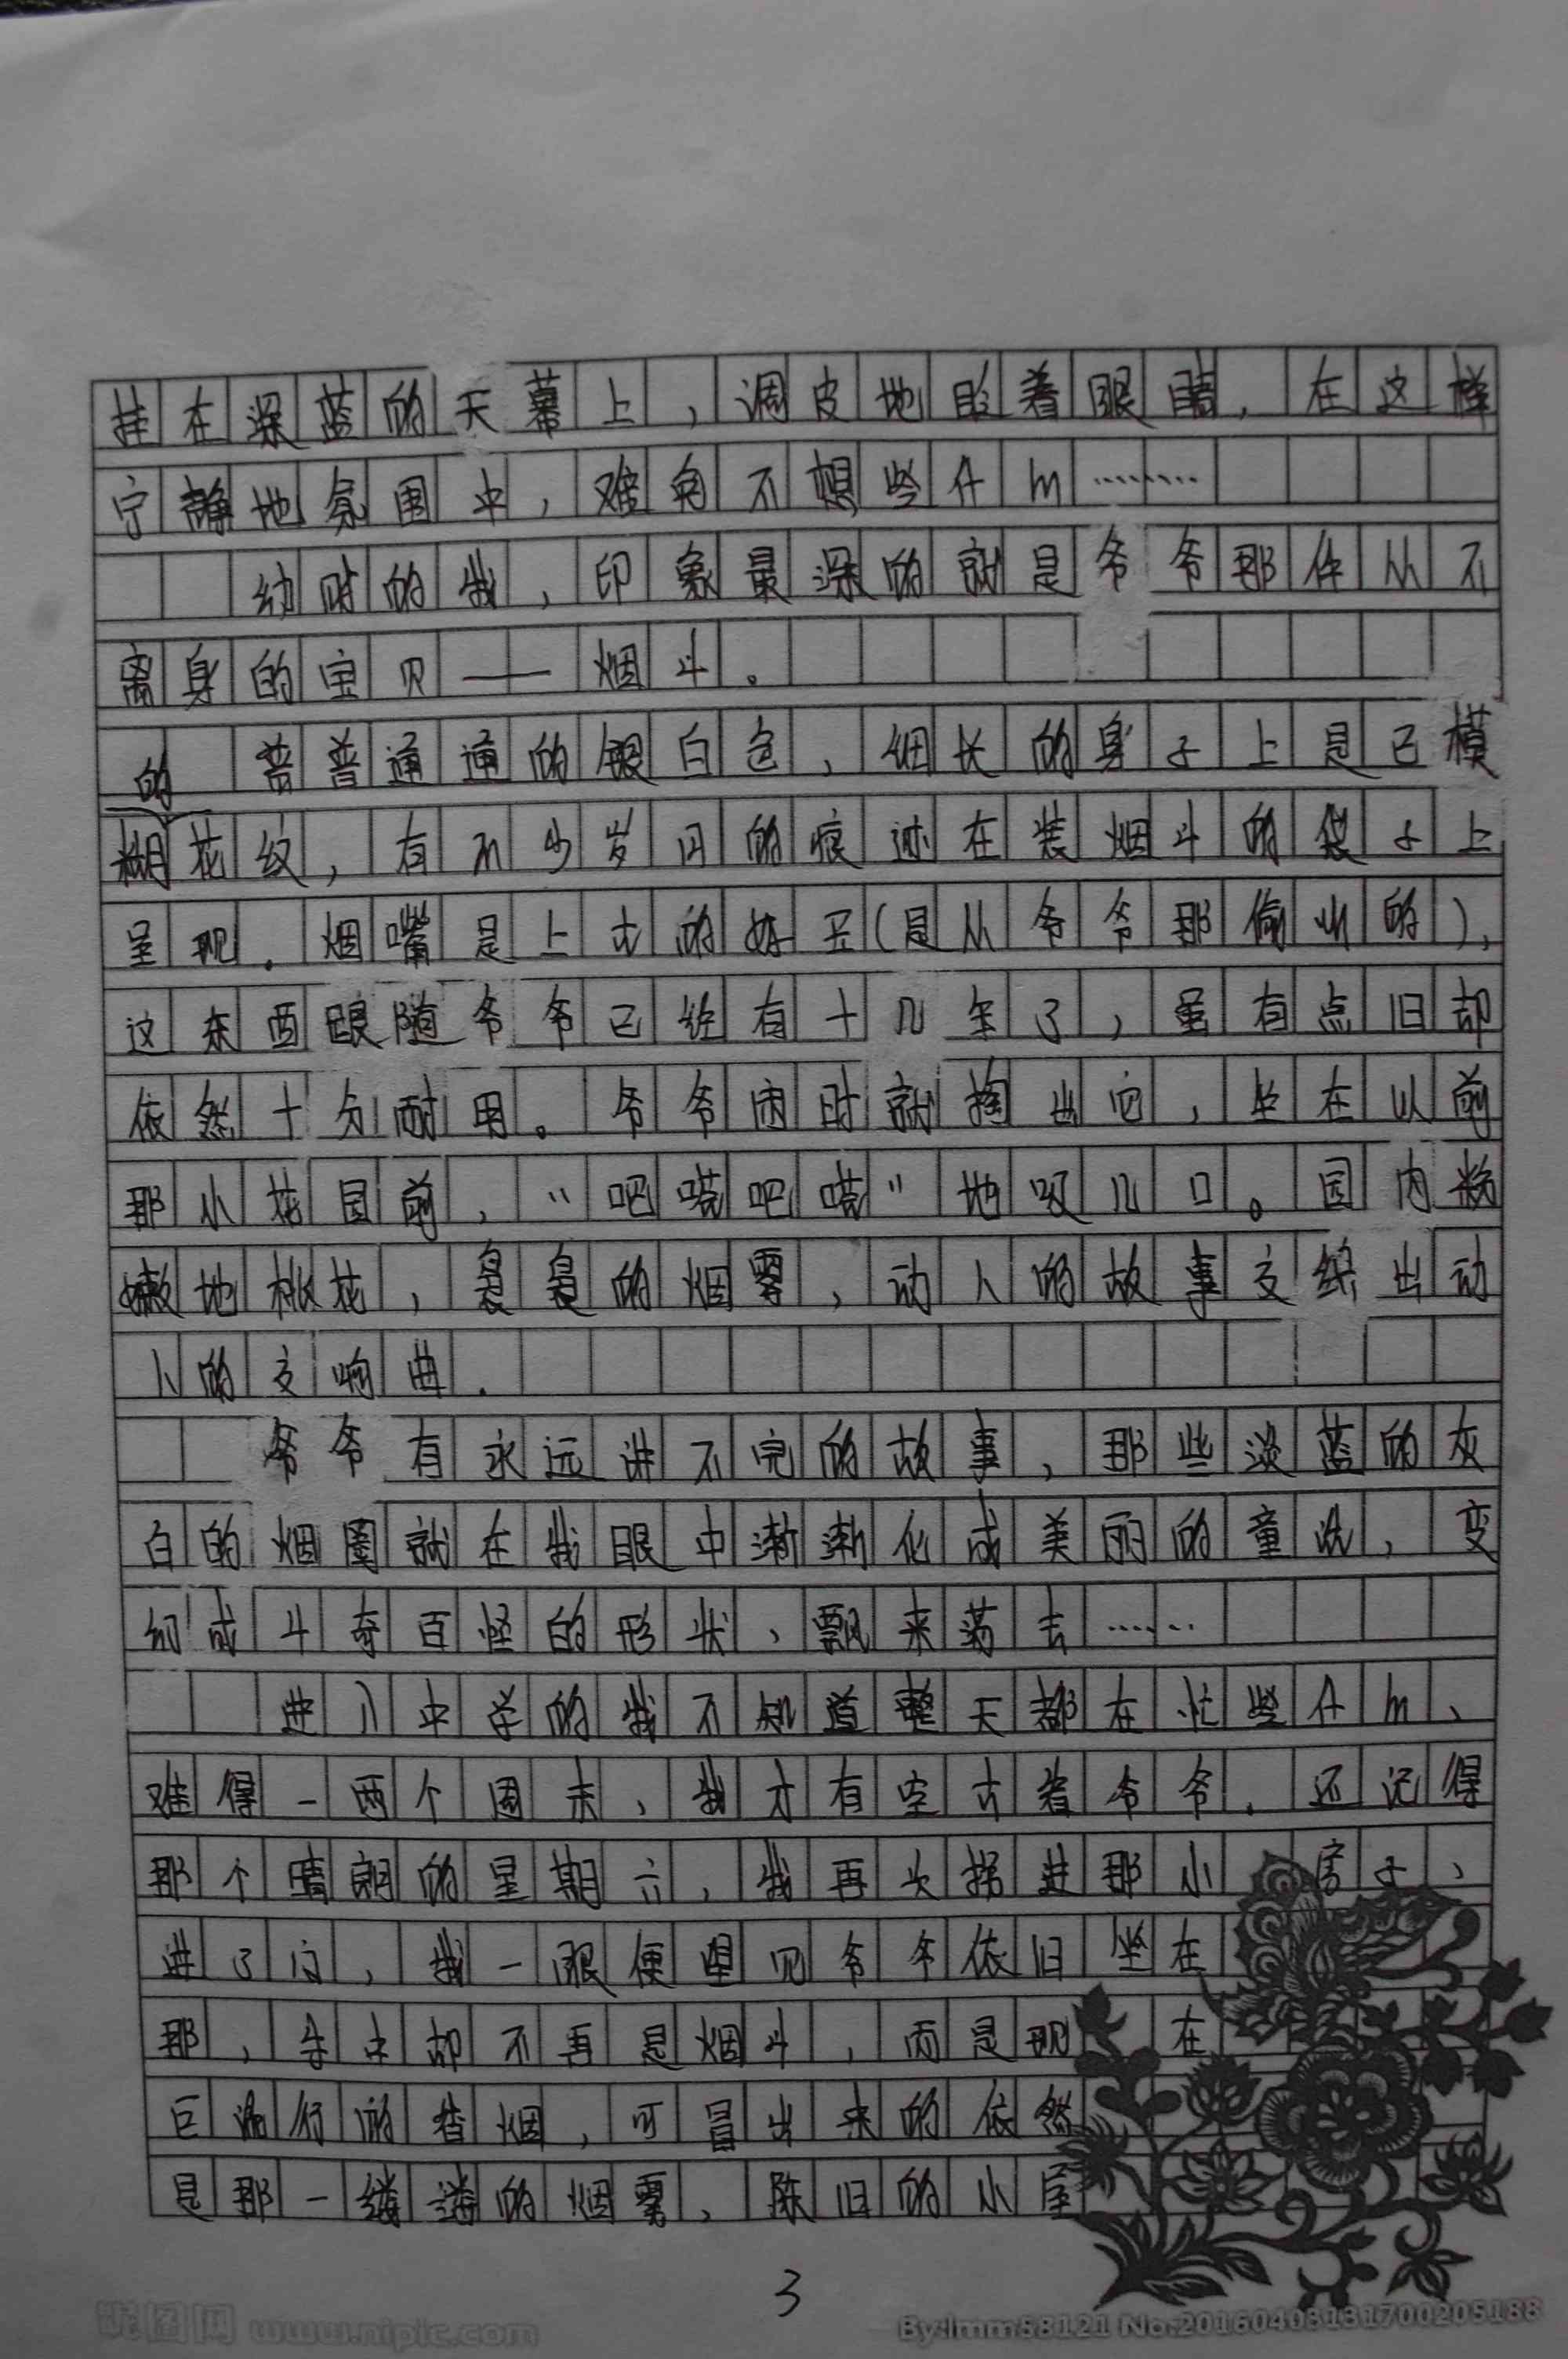 挂在深蓝的天幕上，调皮地眨着眼睛，在这样
宁静地氛围中，难免不想些什m………
幼时的我，印象最深的就是爷爷那件从不
离身的宝贝——烟斗。
普普通通的银白色，细长的身子上是已模
糊的花纹，有不少岁月的痕迹在装烟斗的袋子上
呈现。烟嘴是上古的好玉(是从爷爷那偷出的)，
这东西跟随爷爷已经有十几年了，虽有点旧却
依然十分耐用。爷爷闲时就掏出它，坐在以前
那小花园前，“吧嗒吧嗒”地吸几口。园内粉
嫩地桃花，袅袅的烟雾，动人的故事交织出动
人的交响曲。
爷爷有永远讲不完的故事，那些淡蓝的灰
白的烟圈就在我眼中渐渐化成美丽的童话，变
幻成斗奇百怪的形状，飘来荡去……
进入中学的我不知道整天都在忙些什m、
难得一两个周末，我才有空去看爷爷。还记得
那个晴朗的星期六，我再次拐进那小房子、
进了门，我一眼便望见爷爷依旧坐在
那，手中却不再是烟斗，而是现在
已流行的卷烟，可冒出来的依然
是那一缕缕的烟雾，陈旧的小屋
3
昵图网 www.nipic.com
By:lmm58121 No:20160403131700205188